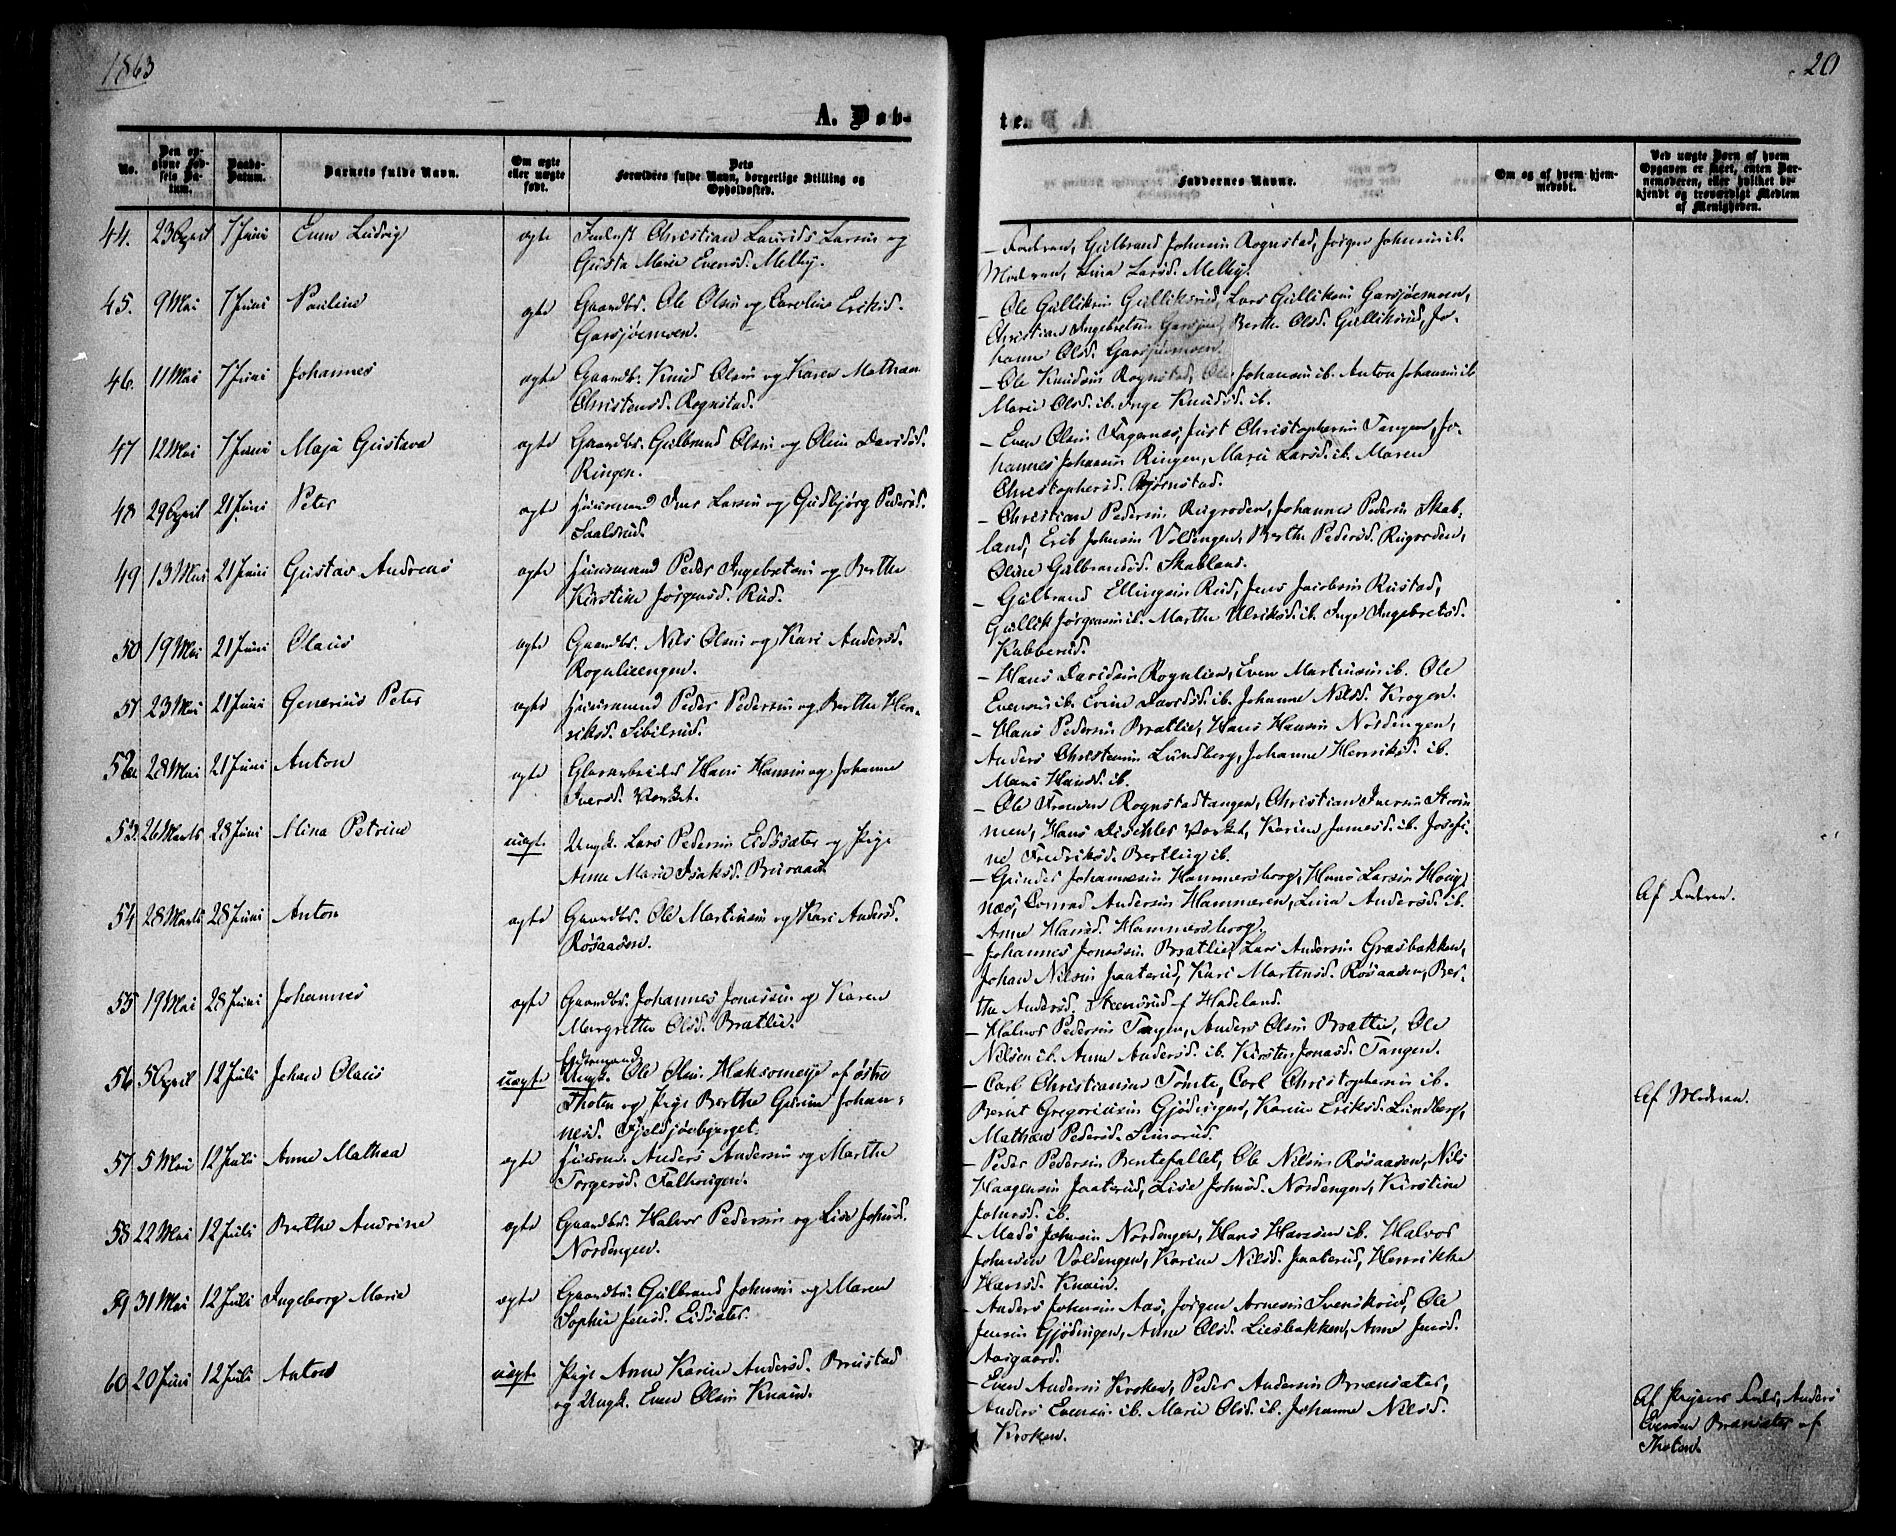 1863
20
A. Døb-
te.
No.
Den op-
givne Fød-
sels Da-
tum.
Daabs-
Datum.
Barnets fulde Navn.
Om ægte
eller uægte
født.
Dets
Forældres fulde Navn, borgerlige Stilling og
Opholdssted.
Faddernes Navne.
Om og af hvem hjem-
medøbt.
Ved uægte Børn af hvem
Opgaven er skeet, enten Bar-
nemoderen, eller hvilket be-
kjendt og troværdigt Medlem
af Menigheden.
44. 23 April 7 Juni Even Ludvig ægte Christian Laurids Larsen og
Gusta Marie Evensd. Melby.
- Faderen, Gulbrand Johnsen Rognstad, Jørgen Johnsen ib.
Moderen, Lina Larsd. Melby.
45. 9 Mai 7 Juni Pauline ægte Gaardbr. Ole Olsen og Caroline Eriksd.
Garsjøemoen.
- Ole Gulliksen Gulliksrud, Lars Gulliksen Garsjøemoen,
Christian Ingebretsen Garsjøen, Berthe Olsd. Gulliksrud, Jo-
hanne Olsd. Garsjøemoen.
46. 11 Mai 7 Juni Johannes ægte Gaardbr. Knud Olsen og Karen Mathea
Christensd. Rognstad.
- Ole Knudsen Rognstad, Ole Johansen ib. Anton Johansen ib.
Marie Olsd. ib. Inge Knudsd. ib.
47 12 Mai 7 Juni Maja Gustava ægte Gaardbr. Gulbrand Olsen og Oline Davidsd.
Ringen.
- Even Olsen Fagernæs, Just Christophersen Tangen, Jo-
hannes Johansen Ringen, Marie Larsd. ib. Maren
Christophersd. Bjørnstad.
48 29 April 21 Juni Peter ægte Huusmand Iver Larsen og Gudbjørg Pedersd.
Saalsrud.
- Christian Pedersen Rugroden, Johannes Pedersen Skab-
land, Erik Johnsen Voldengen, Berthe Pedersd. Rugroden,
Oline Gulbrandsd. Skabland.
49 13 Mai 21 Juni Gustav Andreas ægte Huusmand Peder Ingebretsen og Berthe
Kirstine Jørgensd. Rud.
- Gulbrand Ellingsen Rud, Jens Jacobsen Rustad,
Gullik Jørgensen ib. Marthe Ulriksd. ib. Inge Ingebretsd.
Kabberud.
50 19 Mai 21 Juni Olaus ægte Gaardbr. Nils Olsen og Kari Andersd.
Rognlieengen.
- Hans Davidsen Rognlien, Even Martinsen ib. Ole
Evensen ib. Evine Davidsd. ib. Johanne Nilsd. Krogen.
51 23 Mai 21 Juni Generius Peter ægte Huusmand Peder Pedersen og Berthe Hen-
riksd. Sibilrud.
- Hans Pedersen Bratlie, Hans Hansen Nordengen,
Anders Christensen Lundberg, Johanne Henriksd. ib.
Mari Hansd. ib.
52 28 Mai 21 Juni Anton ægte Glasarbeider Hans Hansen og Johanne
Iversd. Værket.
- Ole Rognstadtangen, Christian Iversen Strøm-
men, Hans Dischler Værket, Karine Jonsd. ib. Josefi-
ne Fredriksd. Berthlig ib.
53. 26 Marts 28 Juni Mina Petrine uægte Ungk. Lars Pedersen Eidssæter og Pige
Anne Marie Isaksd. Buraas.
- Gunder Johannesen Hammersborg, Hans Larsen Houg-
næs, Conrad Andersen Hammeren, Lina Andersd. ib.
Anne Hansd. Hammersborg.
Af Faderen.
54 28 Marts 28 Juni Anton ægte Gaardbr. Ole Martinsen og Kari Andersd.
Røsaasen.
- Johannes Jonassen Bratlie, Lars Andersen Græsbakken,
Johan Nilsen Jaaterud, Kari Martensd. Røsaasen, Ber-
the Andersd. Steensrud af Hadeland.
55 19 Mai 28 Juni Johannes ægte Gaardbr. Johannes Jonassen og Karen
Margrethe Olsd. Bratlie.
- Halvor Pedersen Tangen, Anders Olsen Bratlie, Ole
Nilsen ib. Anne Andersd. ib. Kirsten Jonasd. Tangen.
56 5 April 12 Juli Johan Olaus uægte Ungk. Ole Olsen af østre
Thoten og Pige Berthe Gurine Johan-
nesd. Fjeldsjøebjerget.
- Carl Christiansen Tømte, Carl Christophersen ib.
Bernt Gregoriusen Gjødingen, Karine Eriksd. Lundberg,
Mathea Pedersd. Simorud.
Af Moderen.
57 5 Mai 12 Juli Anne Mathea ægte Huusm. Anders Andersen og Marthe
Torgersd. Falhougen.
- Peder Pedersen Bentefallet, Ole Nilsen Røsaasen, Nils
Haagensen Jaaterud, Lise Johnsd. Nordengen, Kirstine
Johnsd. ib.
58 22 Mai 12 Juli Berthe Andrine ægte Gaardbr. Halvor Pedersen og Lise Johnsd.
Nordengen.
- Mads Johnsen Nordengen, Hans Hansen ib. Halvor
Johnsen Voldengen, Karine Nilsd. Jaaterud, Henrikke
Hansd. Knain.
59 31 Mai 12 Juli Ingeborg Marie ægte Gaardbr. Gulbrand Johnsen og Maren
Sophie Jensd. Eidsæter.
- Anders Johnsen Aas, Jørgen Arnesen Svenskrud, Ole
Jensen Gjødingen, Anne Olsd. Liesbakken, Anne Jensd.
Aasgaard.
60 20 Juni 12 Juli Anton uægte Pige Anne Karine Andersd. Brustad
og Ungk. Even Olsen Knain.
- Even Andersen Kroken, Peder Andersen Brænsæter,
Anders Evensen ib. Marie Olsd. ib. Johanne Nilsd.
Kroken.
Af Pigens Fader, Anders
Evensen Brænsæter af
Thoten.